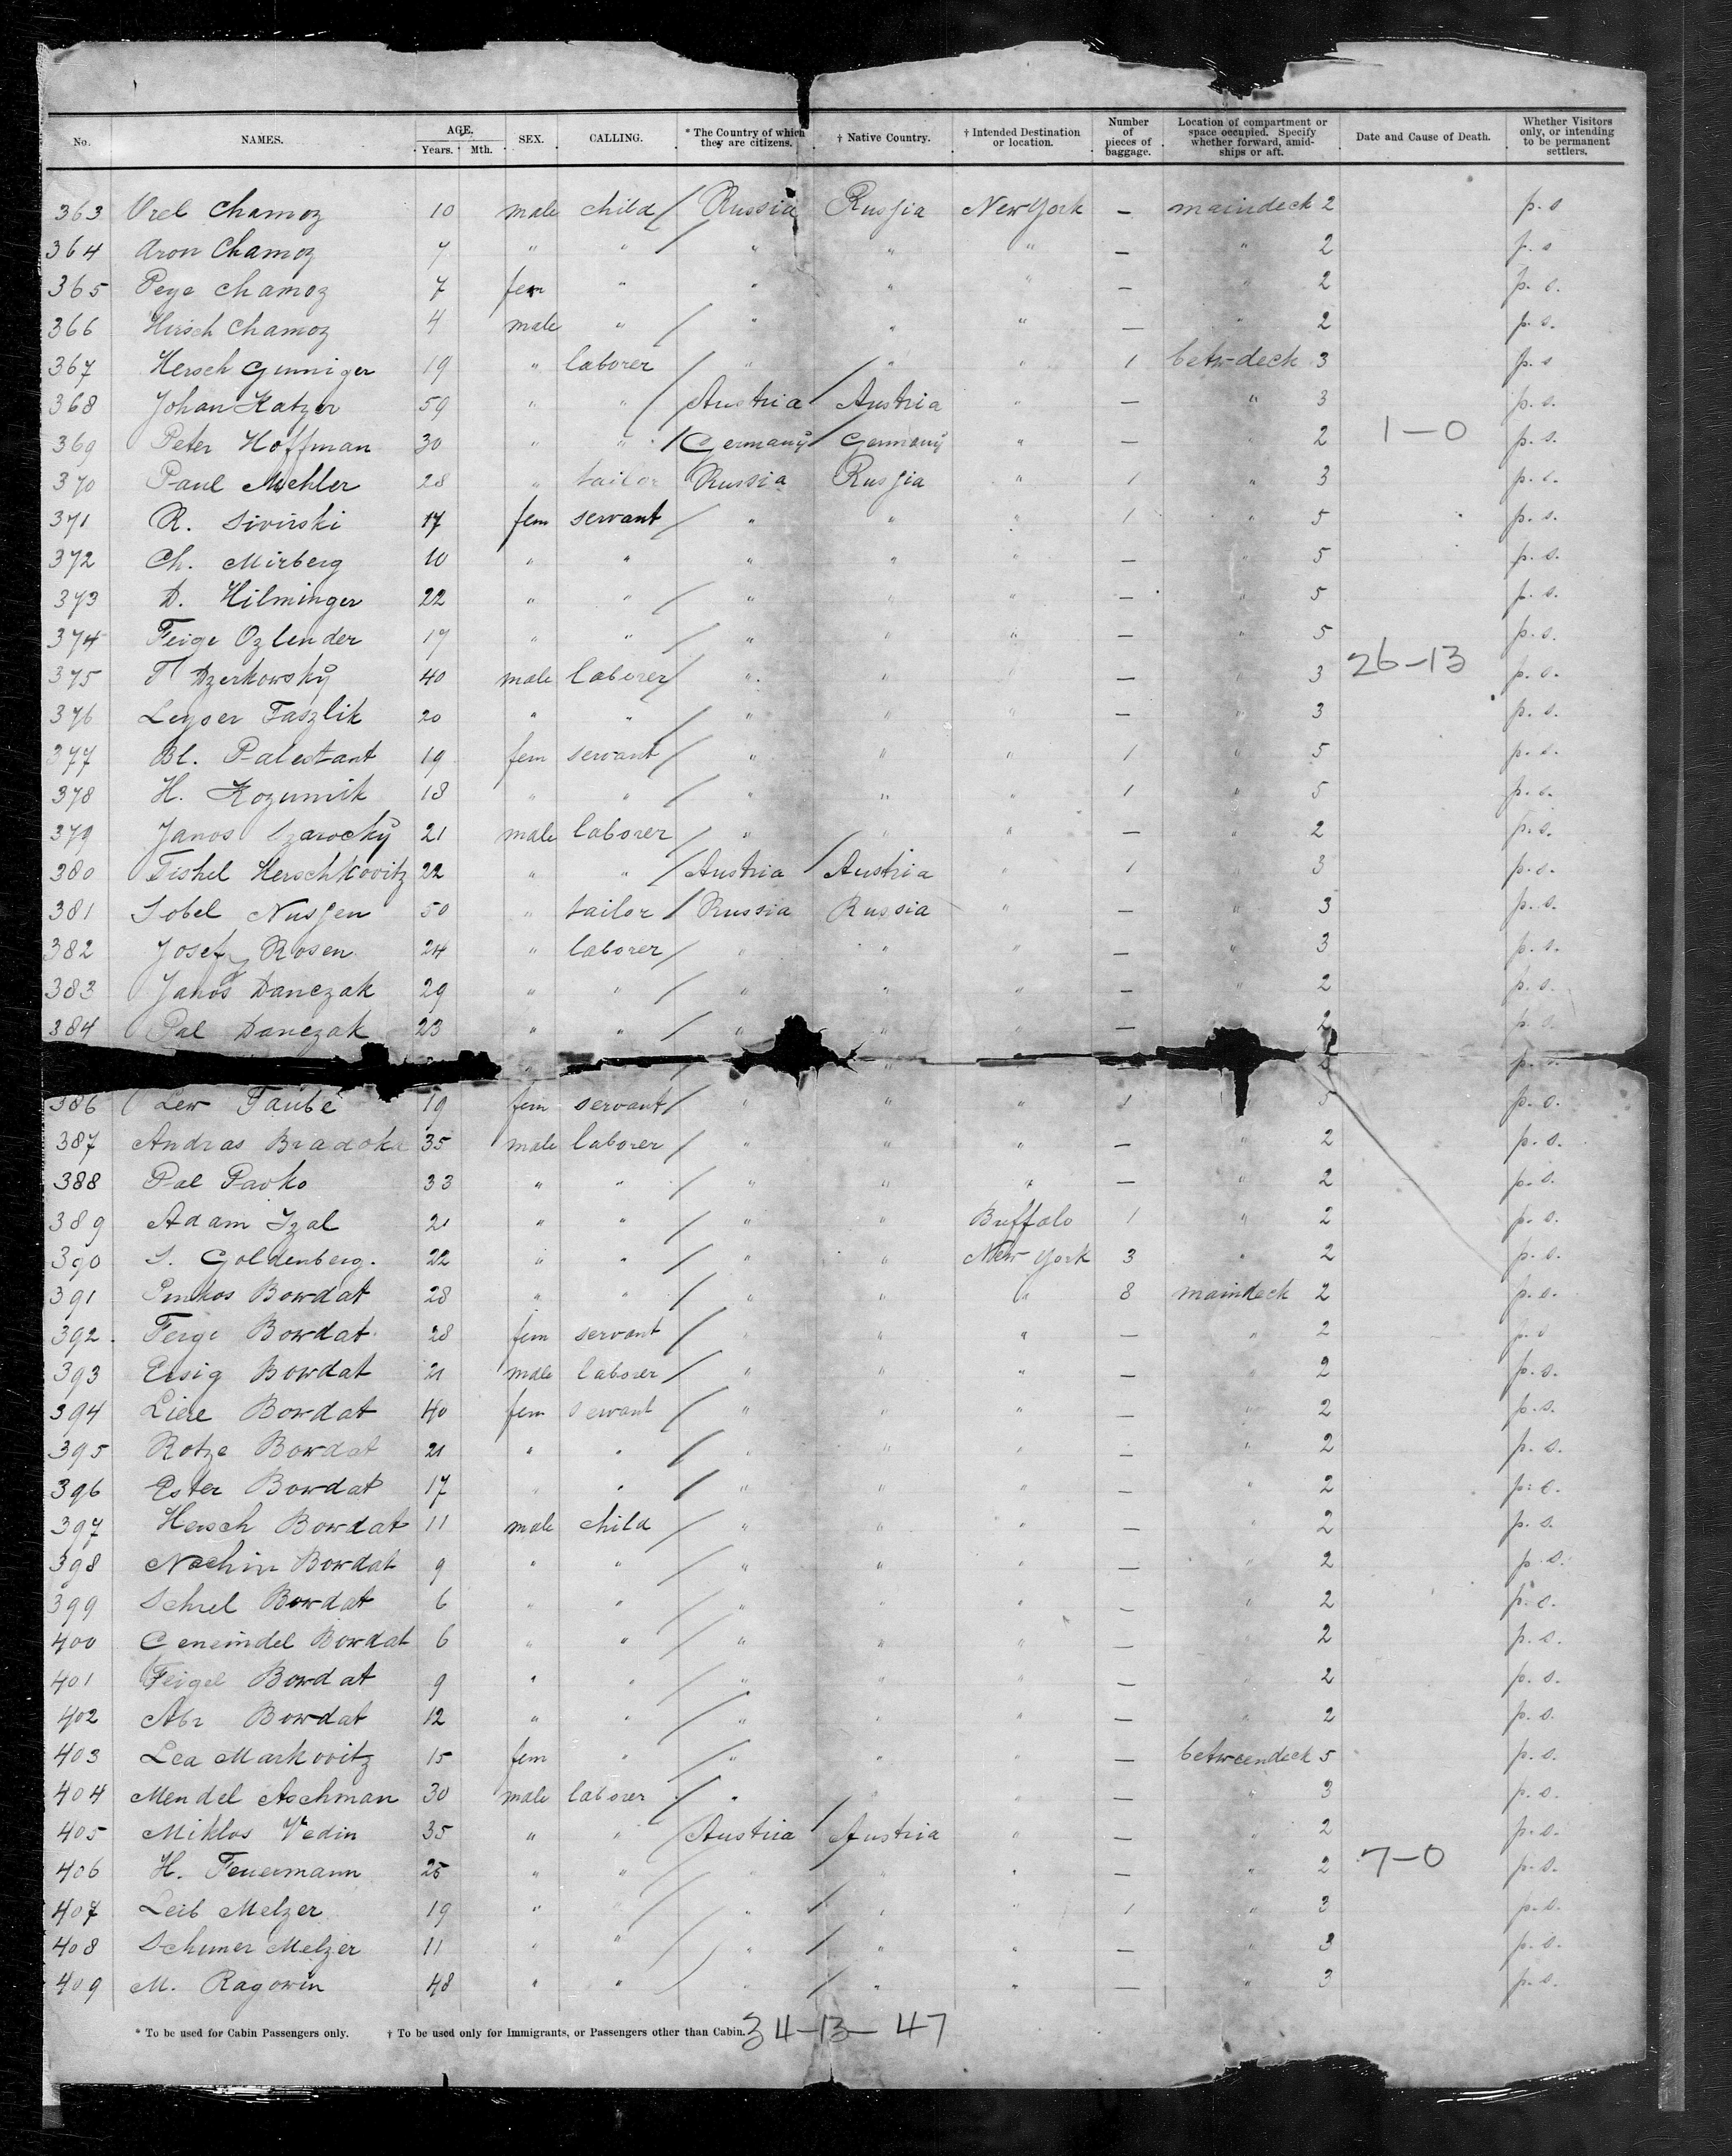 No. NAMES. AGE. Years. Mth. SEX. CALLING. * The Country of which they are citizens. † Native Country. † Intended Destination or location. Number of pieces of baggage. Location of compartment or space occupied. Specify whether forward, amidships or aft. Date and Cause of Death. Whether Visitors only, or intending to be permanent settlers.
363 Urel Chamoz 10 male child / Russia Russia New York — maindeck 2 p. s
364 Aron Chamoz 7 " " / " " " — " 2 p. s
365 Peye Chamoz 7 fem " " " " — " 2 p. s.
366 Hirsch Chamoz 4 male " / " " " — " 2 p. s.
367 Hersch 19 " laborer / " / " " 1 betw-deck 3 p. s
368 Johan Katzer 59 " " / Austria / Austria " — " 3 p. s.
369 Peter Hoffman 30 " " / Germany / Germany " — " 2 1—0 p. s.
370 Paul Mehler 28 " tailor Russia Russia " 1 " 3 p. s.
371 R. Sivirski 17 fem servant / " " " 1 " 5 p. s.
372 Ch. Mirberg 10 " " " " " — " 5 p. s.
373 D. Hilminger 22 " " / " " " — " 5 p. s.
374 Feige Ozlender 17 " " / " " " — " 5 p. s.
375 Dzerkowsky 40 male laborer / " " " — 3 26—13 p. s.
376 Leyser Faszlik 20 " " / " " " — " 3 p. s.
377 Bl. Palestant 19 fem servant / " " " 1 " 5 p. s.
378 H. Kozumik 18 " " / " " " 1 " 5 p. s.
379 Janos Szarocky 21 male laborer / " " " — " 2 p. s.
380 Fishel Herschkovitz 22 " " / Austria / Austria " 1 " 3 p. s.
381 Sobel Nussen 50 " tailor / Russia Russia " — " 3 p. s.
382 Josef Rosen 24 " laborer / " " " — " 3 p. s.
383 Janos Danczak 29 " " / " " " — " 2 p. s.
384 Pal Danczak 23 " " / " " " — 2 p. s.
386 Lew Taube 19 fem servant / " " " 1 5 p. s.
387 Andras 35 male laborer / " " " — " 2 p. s.
388 Pal Pavko 33 " " / " " " — " 2 p. s.
389 Adam Izal 21 " " / " " Buffalo 1 " 2 p. s.
390 S. Goldenberg. 22 " " / " " New York 3 " 2 p. s.
391 Pinkos Bowdat 28 " " / " " " 8 maindeck 2 p. s.
392. Feige Bowdat 28 fem servant / " " " — " 2 p. s
393 Eisig Bowdat 21 male laborer / " " " — " 2 p. s.
394 Liere Bowdat 40 fem servant / " " " — " 2 p. s.
395 Rotze Bowdat 21 " " / " " " — " 2 p. s.
396 Ester Bowdat 17 " " / " " " — " 2 p. s.
397 Hersch Bowdat 11 male child / " " " — " 2 p. s.
398 Nochin Bowdat 9 " " / " " " — " 2 p. s.
399 Schrel Bowdat 6 " " / " " " — " 2 p. s.
400 Ceneindel Bowdat 6 " " / " " " — " 2 p. s.
401 Feigel Bowdat 9 " " / " " " — " 2 p. s.
402 Abr Bowdat 12 " " / " " " — " 2 p. s.
403 Lea Markovitz 15 fem " / " " " — betweendeck 5 p. s.
404 Mendel Aschman 30 male laborer / " " " — " 3 p. s.
405 Miklos Vedin 35 " " / Austria / Austria " — " 2 p. s.
406 H. Feuermann 25 " " / " " " — " 2 7—0 p. s.
407 Leib Melzer 19 " / " / " " 1 " 3 p. s.
408 Schmer Melzer 11 " " / " / " " — " 3 p. s.
409 M. Ragowin 48 " " / " / " " — " 3 p. s.
* To be used for Cabin Passengers only. † To be used only for Immigrants, or Passengers other than Cabin. 34—13— 47